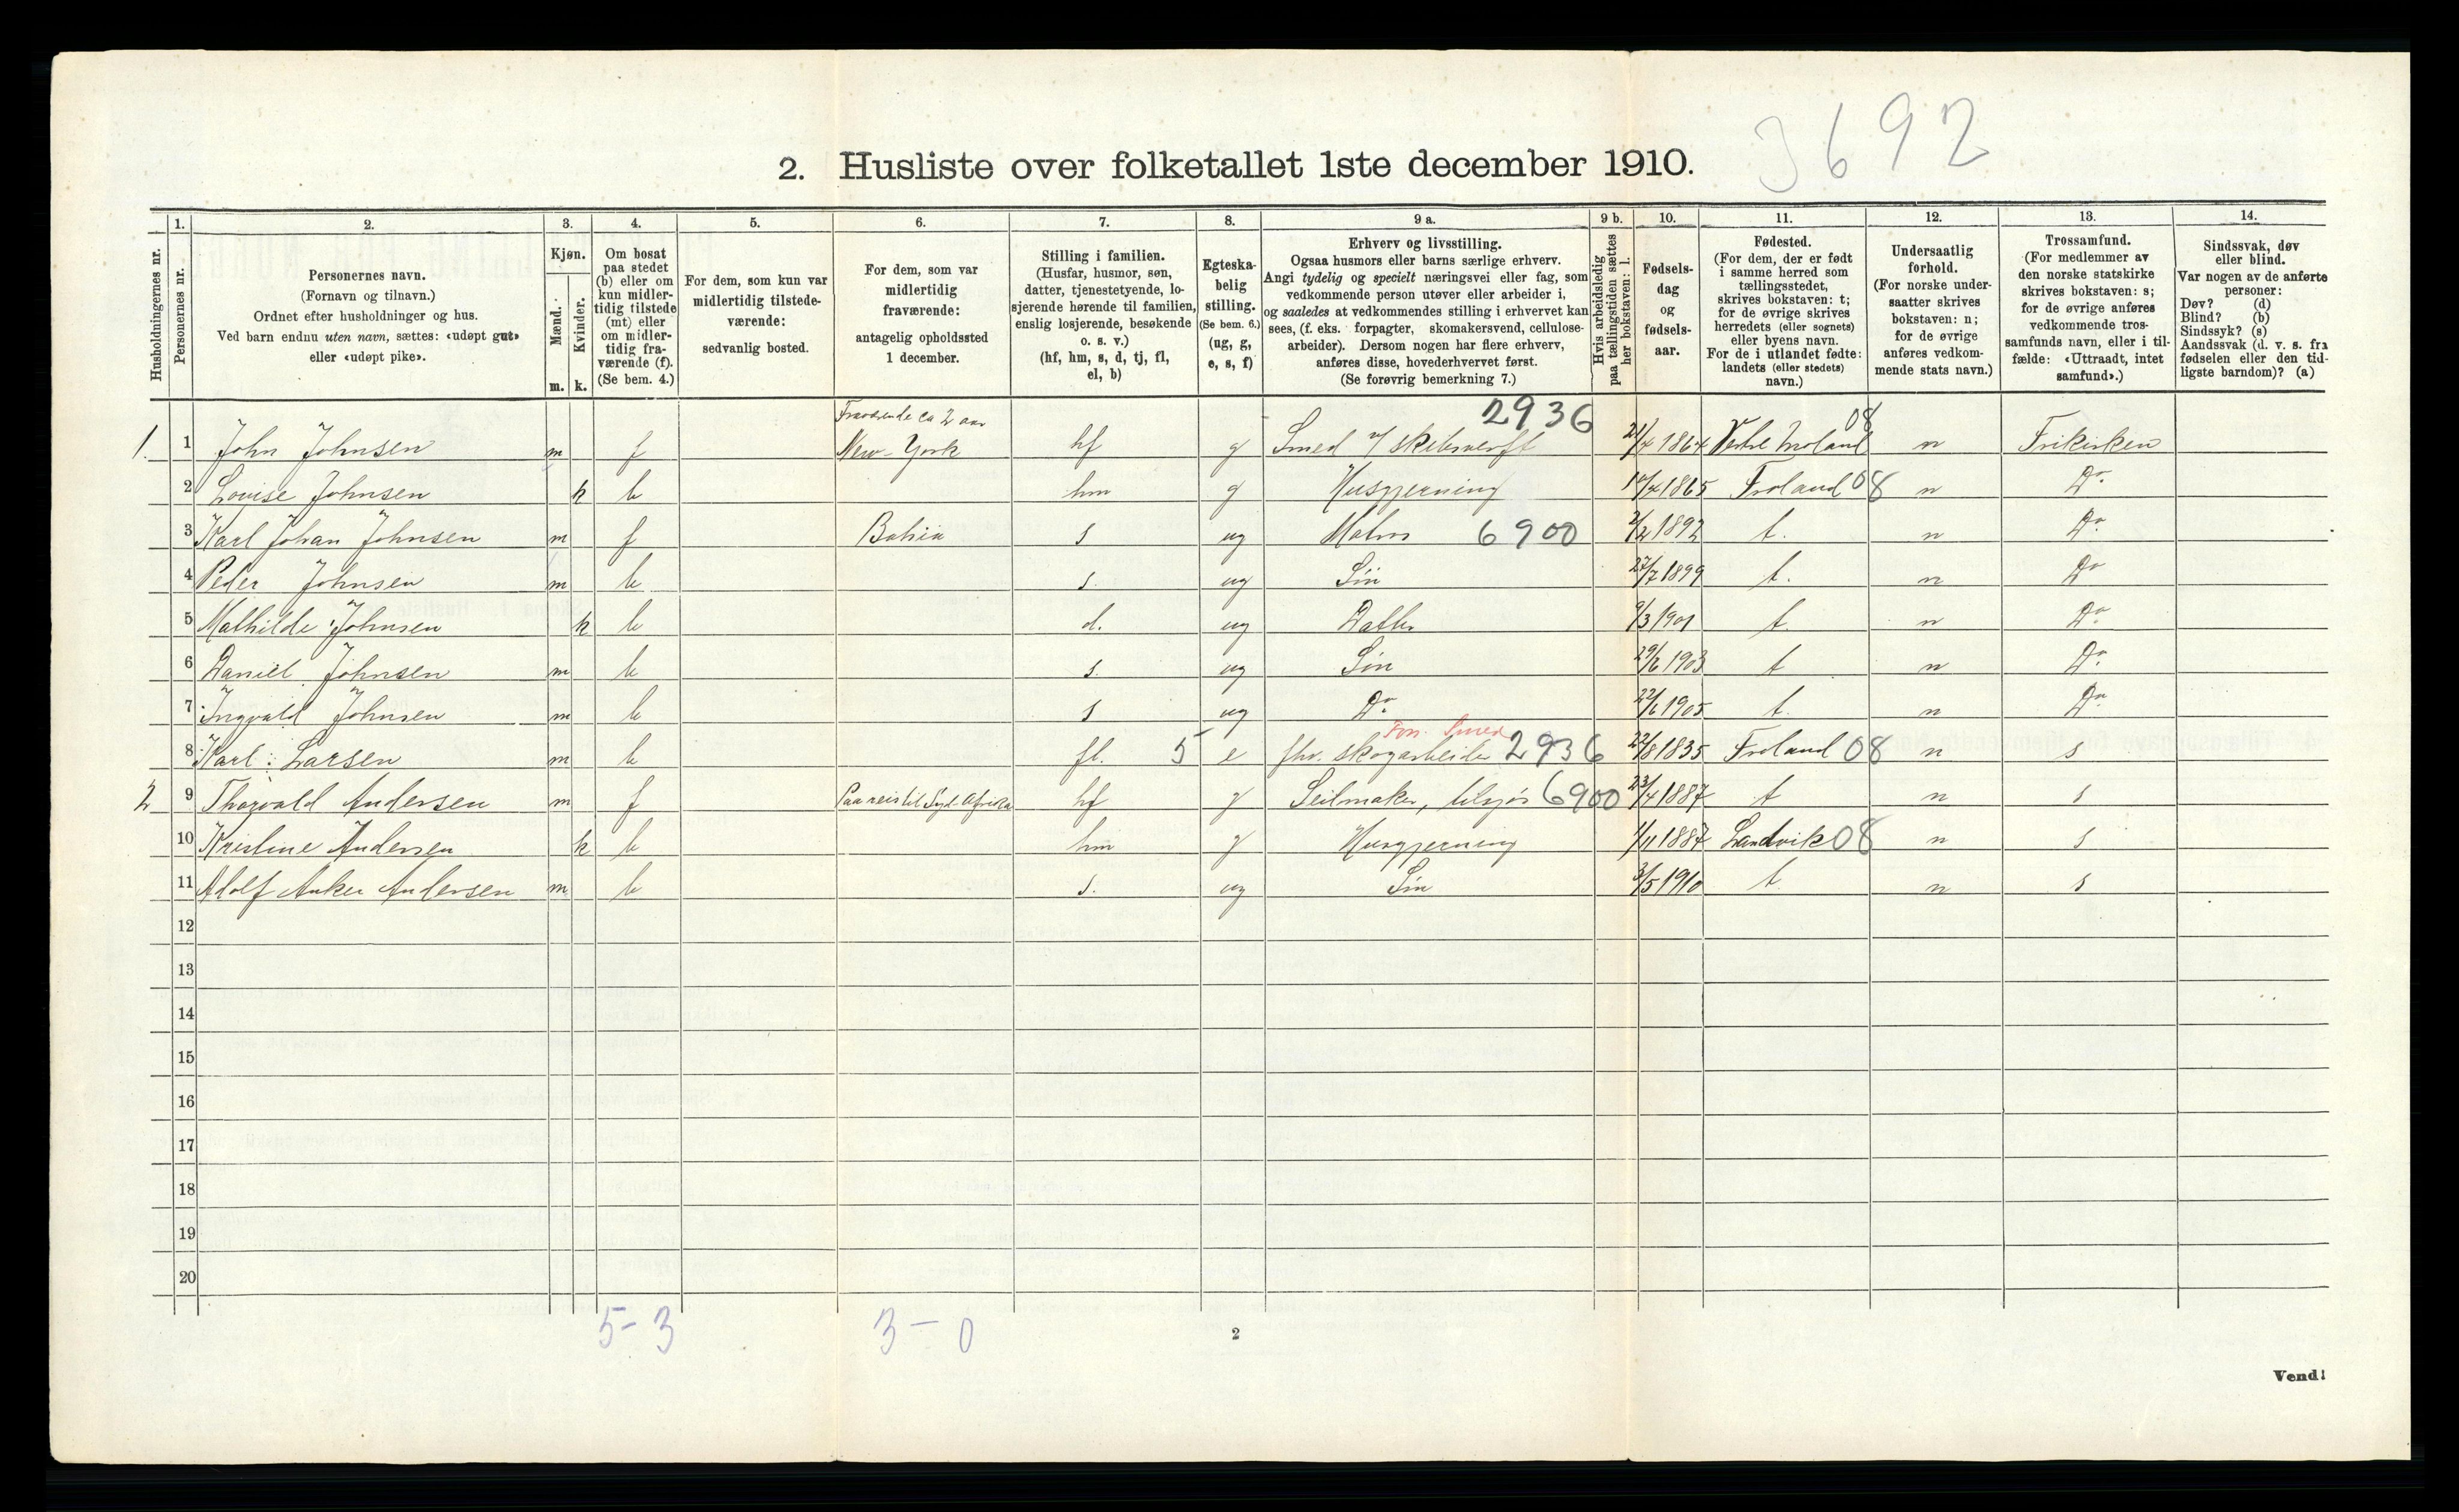 3692
2. Husliste over folketallet 1ste december 1910.
Husholdningernes nr.
1. Personernes nr.
2. Personernes navn. (Fornavn og tilnavn.) Ordnet efter husholdninger og hus. Ved barn endnu uten navn, sættes: «udøpt gut» eller «udøpt pike».
3. Kjøn. Mænd. m. Kvinder. k.
4. Om bosat paa stedet (b) eller om kun midlertidig tilstede (mt) eller om midlertidig fraværende (f). (Se bem. 4.)
5. For dem, som kun var midlertidig tilstedeværende: sedvanlig bosted.
6. For dem, som var midlertidig fraværende: antagelig opholdssted 1 december.
7. Stilling i familien. (Husfar, husmor, søn, datter, tjenestetyende, losjerende hørende til familien, enslig losjerende, besøkende o. s. v.) (hf, hm, s, d, tj, fl, el, b)
8. Egteskabelig stilling. (Se bem. 6.) (ug, g, e, s, f)
9 a. Erhverv og livsstilling. Ogsaa husmors eller barns særlige erhverv. Angi tydelig og specielt næringsvei eller fag, som vedkommende person utøver eller arbeider i, og saaledes at vedkommendes stilling i erhvervet kan sees, (f. eks. forpagter, skomakersvend, cellulosearbeider). Dersom nogen har flere erhverv, anføres disse, hovederhvervet først. (Se forøvrig bemerkning 7.)
9 b. Hvis arbeidsledig paa tællingstiden sættes her bokstaven: l.
10. Fødselsdag og fødselsaar.
11. Fødested. (For dem, der er født i samme herred som tællingsstedet, skrives bokstaven: t; for de øvrige skrives herredets (eller sognets) eller byens navn. For de i utlandet fødte: landets (eller stedets) navn.)
12. Undersaatlig forhold. (For norske undersaatter skrives bokstaven: n; for de øvrige anføres vedkommende stats navn.)
13. Trossamfund. (For medlemmer av den norske statskirke skrives bokstaven: s; for de øvrige anføres vedkommende trossamfunds navn, eller i tilfælde: «Uttraadt, intet samfund».)
14. Sindssvak, døv eller blind. Var nogen av de anførte personer: Døv? (d) Blind? (b) Sindssyk? (s) Aandssvak (d. v. s. fra fødselen eller den tidligste barndom)? (a)
Fraværende ca 2 aar 2936 08
1. 1 John Johnsen m f New-York hf g Smed v/ skibsverft 21/4 1864 Vestre Moland n Frikirken
2 Louise Johnsen k b hm g Husgjerning 1865 Froland 08 n Do
3 Karl Johan Johnsen m f Bahia s ug Matros 6900 2/2 1892 t. n Do
4 Peder Johnsen m b s. ug Søn 27/7 1899 t. n Do
5 Mathilde Johnsen k b d. ug Datter 9/3 1901 t. n Do
6 Daniel Johnsen m b s. ug Søn 29/6 1903 t n Do
7 Ingvald Johnsen m b s ug Do 22/6 1905 t. n Do
Fon. Smed
8 Karl Larsen m b fl. 5 e fhv. skogarbeider 2936 22/8 1835 Froland 08 n s
2 9 Thorvald Andersen m f Paa reis til Syd-Afrika hf g Seilmaker, tilsjøs 6900 23/4 1887 t n s
10 Kristine Andersen k b hm g Husgjerning 1/11 1887 Landvik 08 n s
11 Adolf Anker Andersen m b s. ug Søn 3/5 1910 t. n s
12
13
14
15
16
17
18
19
20
5-3 3-0
2
Vend!